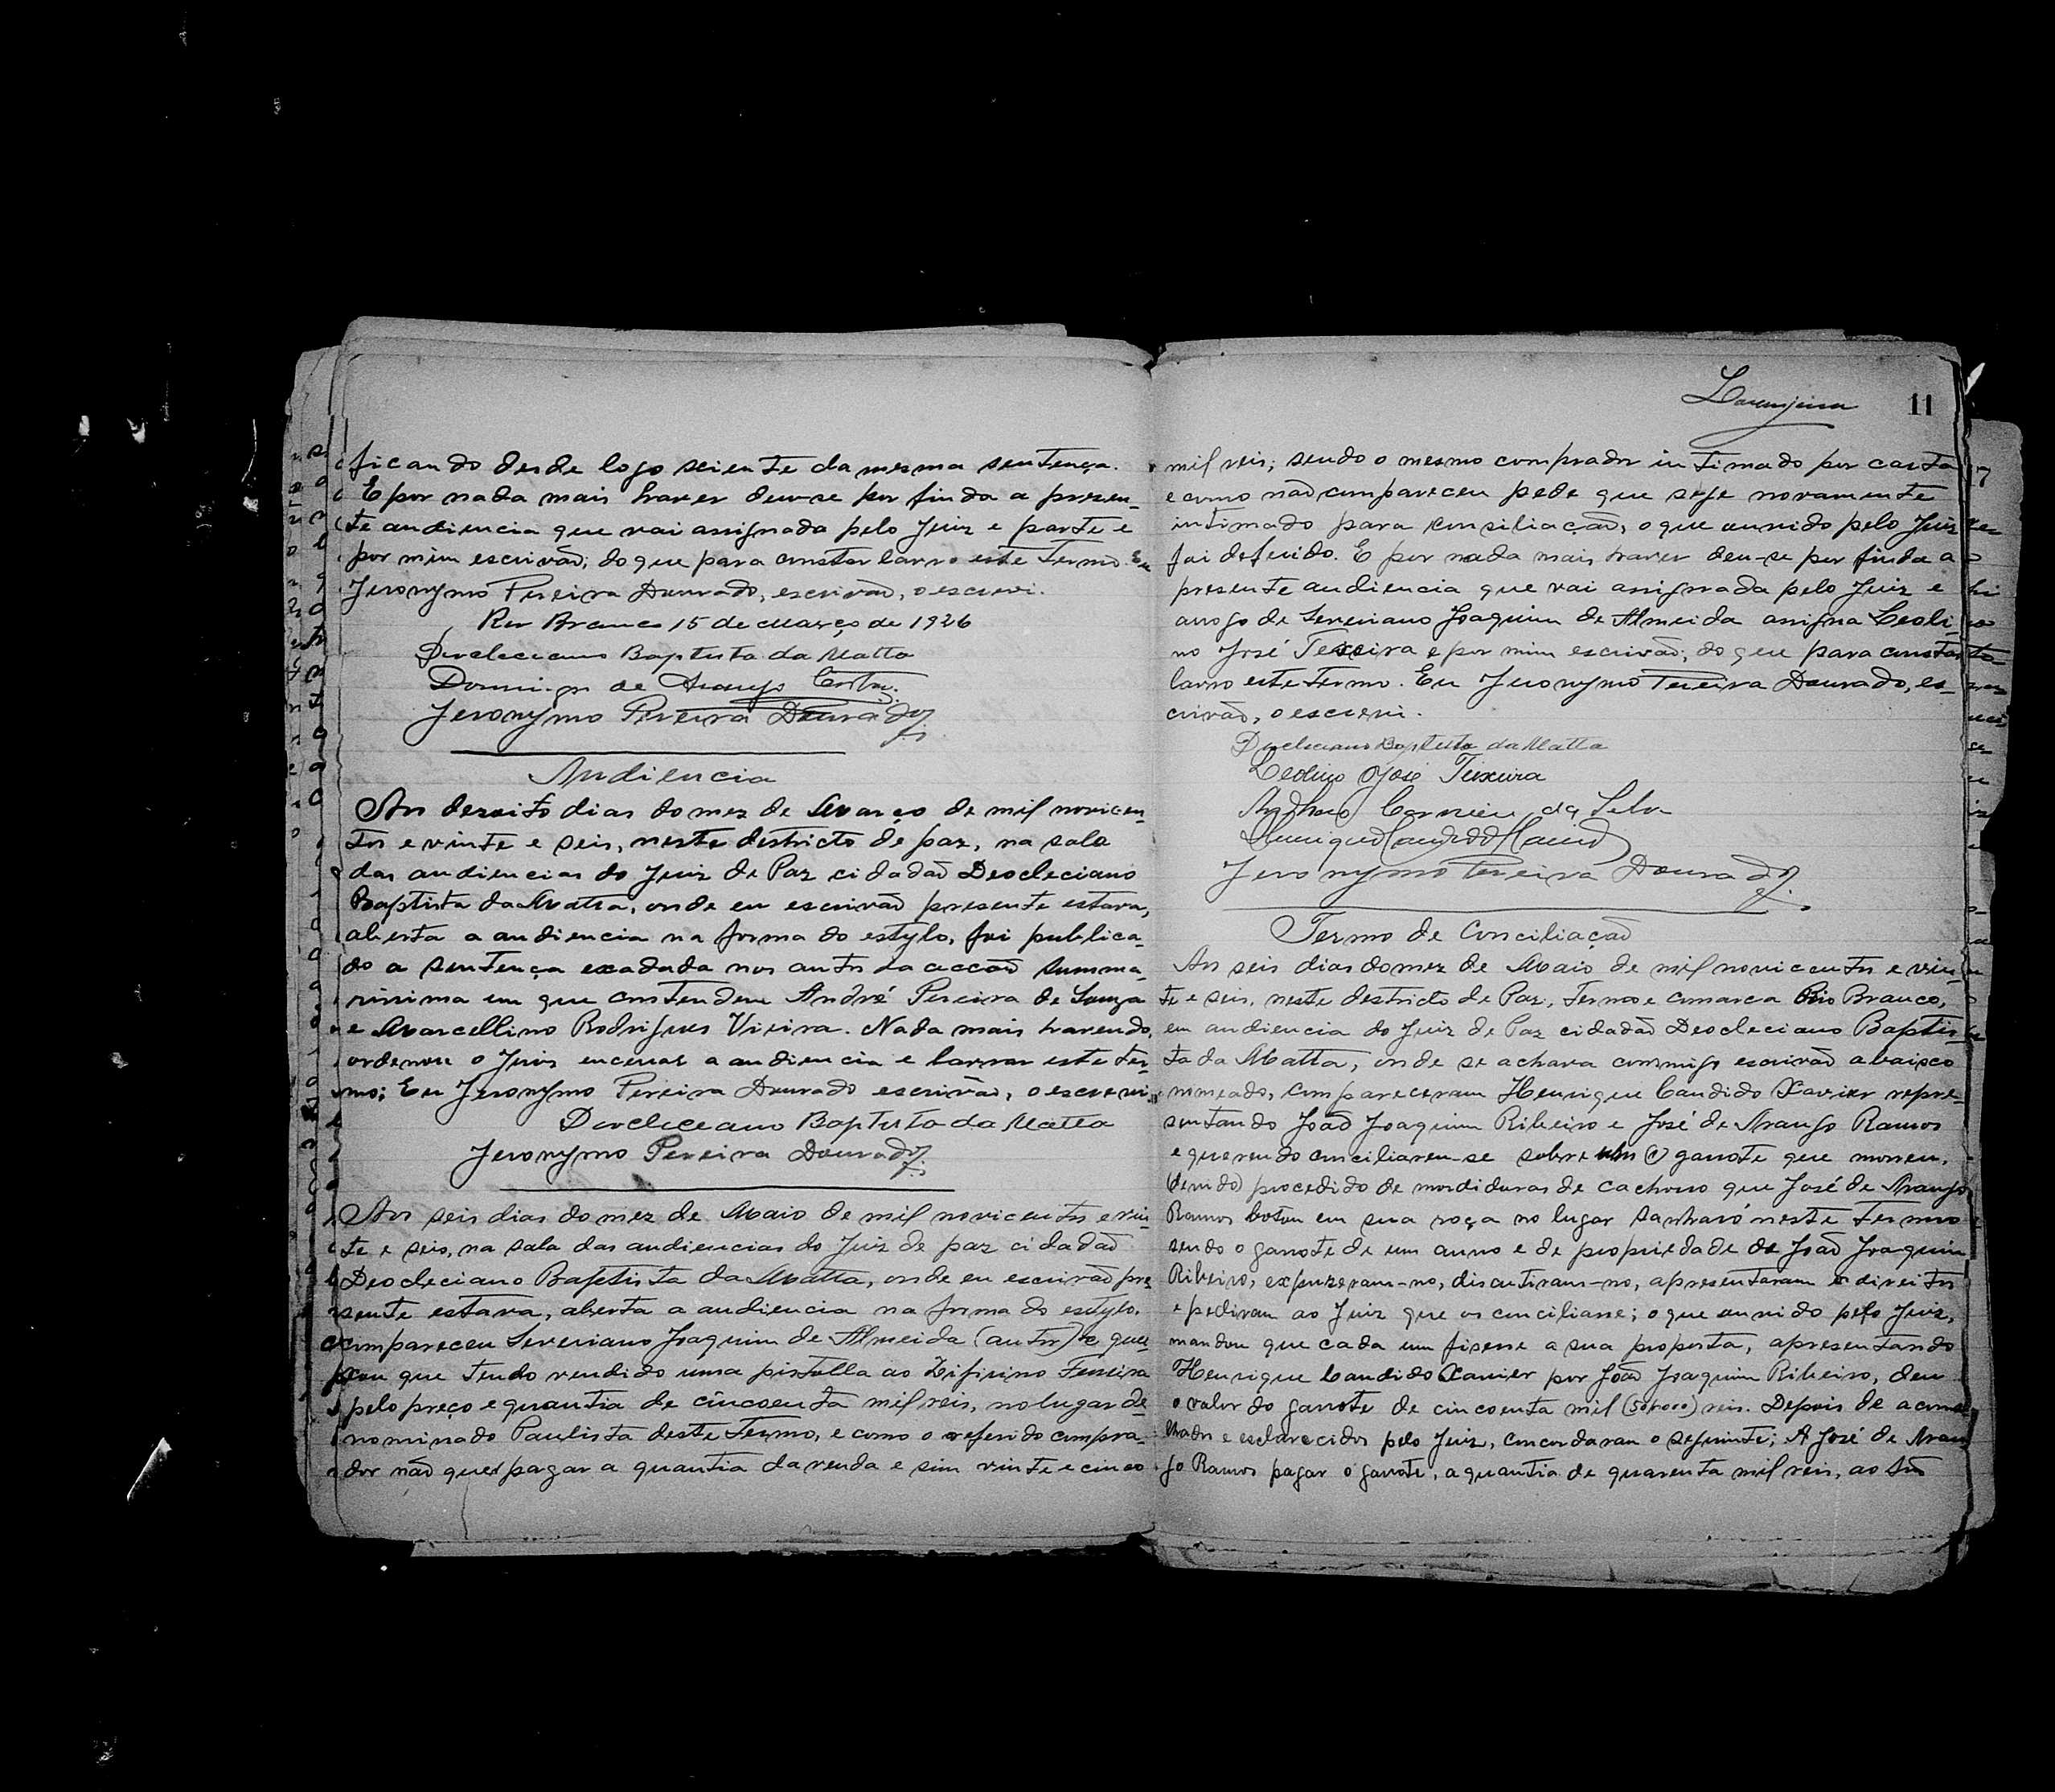 ficando desde logo sciente da mesma sentença.
E por nada mais haver deu-se por finda a presen-
te audiencia que vai assignada pelo Juiz e parte e
por mim escrivaõ; do que para constar lavro este Termo. Eu
Jeronymo Pereira Dourado, escrivaõ, o escrevi.
Rio Branco 15 de Março de 1926
Diocleciano Baptista da Matta
Domingos de Araujo Costa.
Jeronymo Pereira Dourado
Audiencia
Aos dezoito dias do mez de Março de mil novicen-
tos e vinte e seis, neste destricto de paz, na sala
das audiencias do Juiz de Paz cidadaõ Deocleciano
Baptista da Matta, onde eu escrivaõ presente estava,
aberta a audiencia na forma do estylo, foi publica-
do a sentença exadada nos autos da acçaõ summa-
rissima em que contendem André Pereira de Souza
e Marcellino Rodrigues Vieira. Nada mais havendo,
ordenou o Juis encerrar a audiencia e lavrar este ter-
mo; Eu Jeronymo Pereira Dourado escrivão, o escrevi.
Diocleciano Baptista da Matta
Jeronymo Pereira Dourado
Aos seis dias do mez de Maio de mil novicentos e vin-
te e seis, na sala das audiencias do Juiz de paz cidadaõ
Deocleciano Baptista da Matta, onde eu escrivaõ pre-
sente estava, aberta a audiencia na forma do estylo,
compareceu Severiano Joaquim de Almeida (autor) e quei-
xou que tendo vendido uma pistolla ao Zifirino Ferreira
pelo preço e quantia de cincoenta mil réis, no lugar de-
nominado Paulista deste Termo, e como o referido compra-
dor naõ quer pagar a quantia da venda e sim vinte e cinco
Laranjeira 11
mil reis; sendo o mesmo comprador intimado por carta
e como naõ compareceu pede que seje novamente
intimado para consiliaçaõ, o que ouvido pelo Juiz
foi deferido. E por nada mais haver deu-se por finda a
presente audiencia que vai assignada pelo Juiz e
arogo de Severiano Joaquim de Almeida assigna Leoli-
no José Teixeira e por mim escrivaõ; do que para constar
lavro este termo. Eu Jeronymo Pereira Dourado, es-
crivaõ, o escrevi.
Diocleciano Baptista da Matta
Leolino José Teixeira
Carneiro da Silva
Henrique Candido Xavier
Jeronymo Pereira Dourado
Termo de Conciliaçaõ
Aos seis dias do mez de Maio de mil novicentos e vin-
te e seis, neste destricto de Paz, Termo e comarca Rio Branco,
em audiencia do Juiz de Paz cidadaõ Deocleciano Baptis-
ta da Matta, onde se achava commigo escrivaõ abaixo
nomeado, compareceram Henrique Candido Xavier repre-
sentando Joaõ Joaquim Ribeiro e José de Araujo Ramos
e querendo conciliarem-se sobre um (1) garrote que morreu,
(devido) procedido de mordiduras de cachorro que José de Araujo
Ramos botou em sua roça no lugar Sanharó neste Termo
sendo o garrote de um anno e de propriedade de Joaõ Joaquim
Ribeiro, expuzeram-no, discutiram-no, apresentaram o direitos
e pediram ao Juiz que os conciliasse; o que ouvido pelo Juiz,
mandou que cada um fizesse a sua proposta, apresentando
Henrique Candido Xavier por Joaõ Joaquim Ribeiro, deu
o valor do garrote de cincoenta mil (50$000) reis. Depois de aconse-
lhados e esclarecidos pelo Juiz, concordaram o seguinte; A José de Arau-
jo Ramos pagar o garrote, a quantia de quarenta mil reis, ao